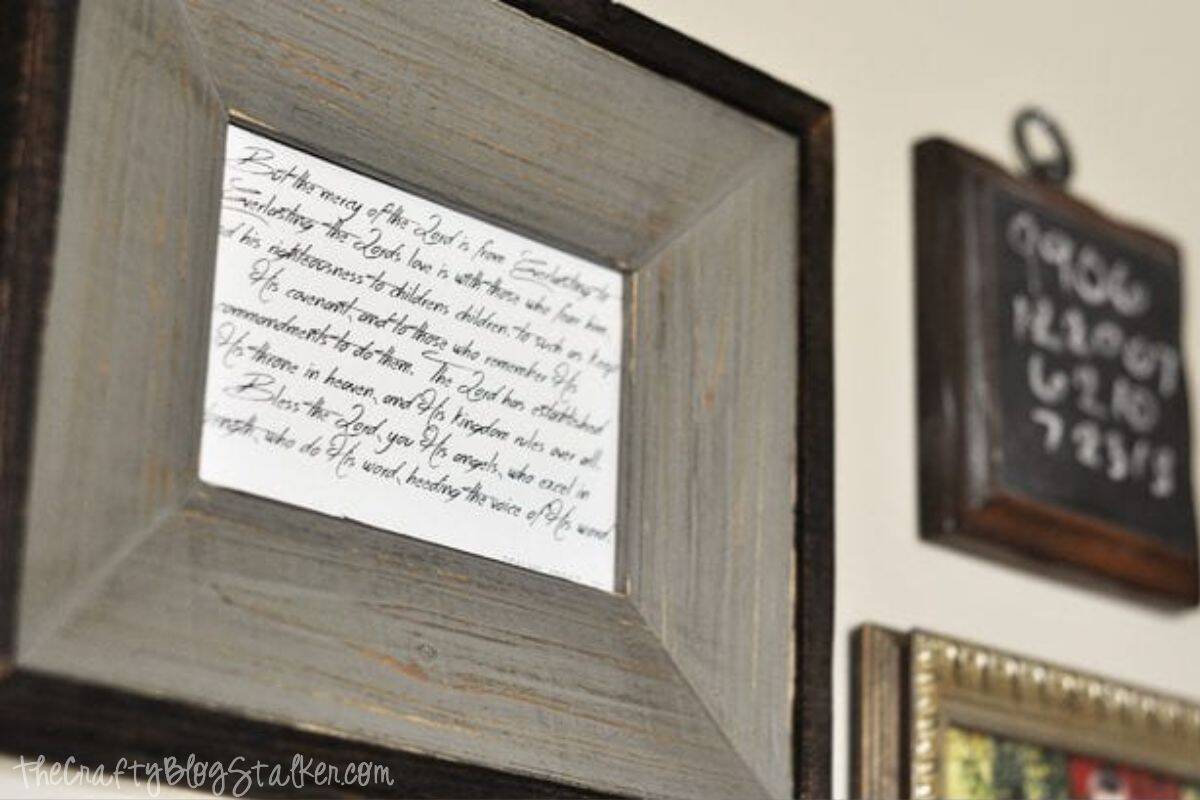 But the mercy of the Lord is from Everlasting to
Everlasting the Lords love is with those who fear him,
his righteousness to childrens children, to such as keep
His covenant, and to those who remember His
commandments to do them. The Lord has established
His throne in heaven, and His kingdom rules over all.
Bless the Lord, you His angels, who excel in
who do His word, heeding the voice of His word
6210
TheCraftyBlogStalker.com